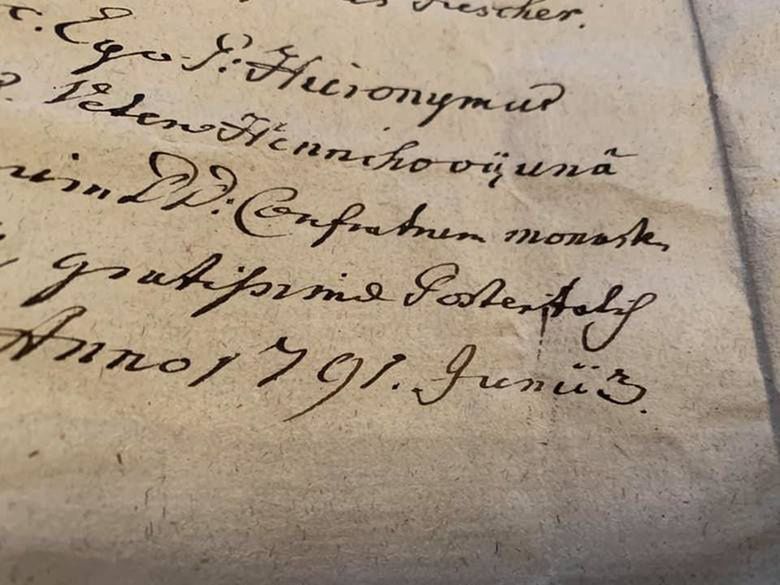 Fiescher.
Ego P: Hieronymus
Vetero Hennrichovij unã
DD: Confratrum monast.
gratissimæ Posteritatis
Anno 1791. Junii 3.